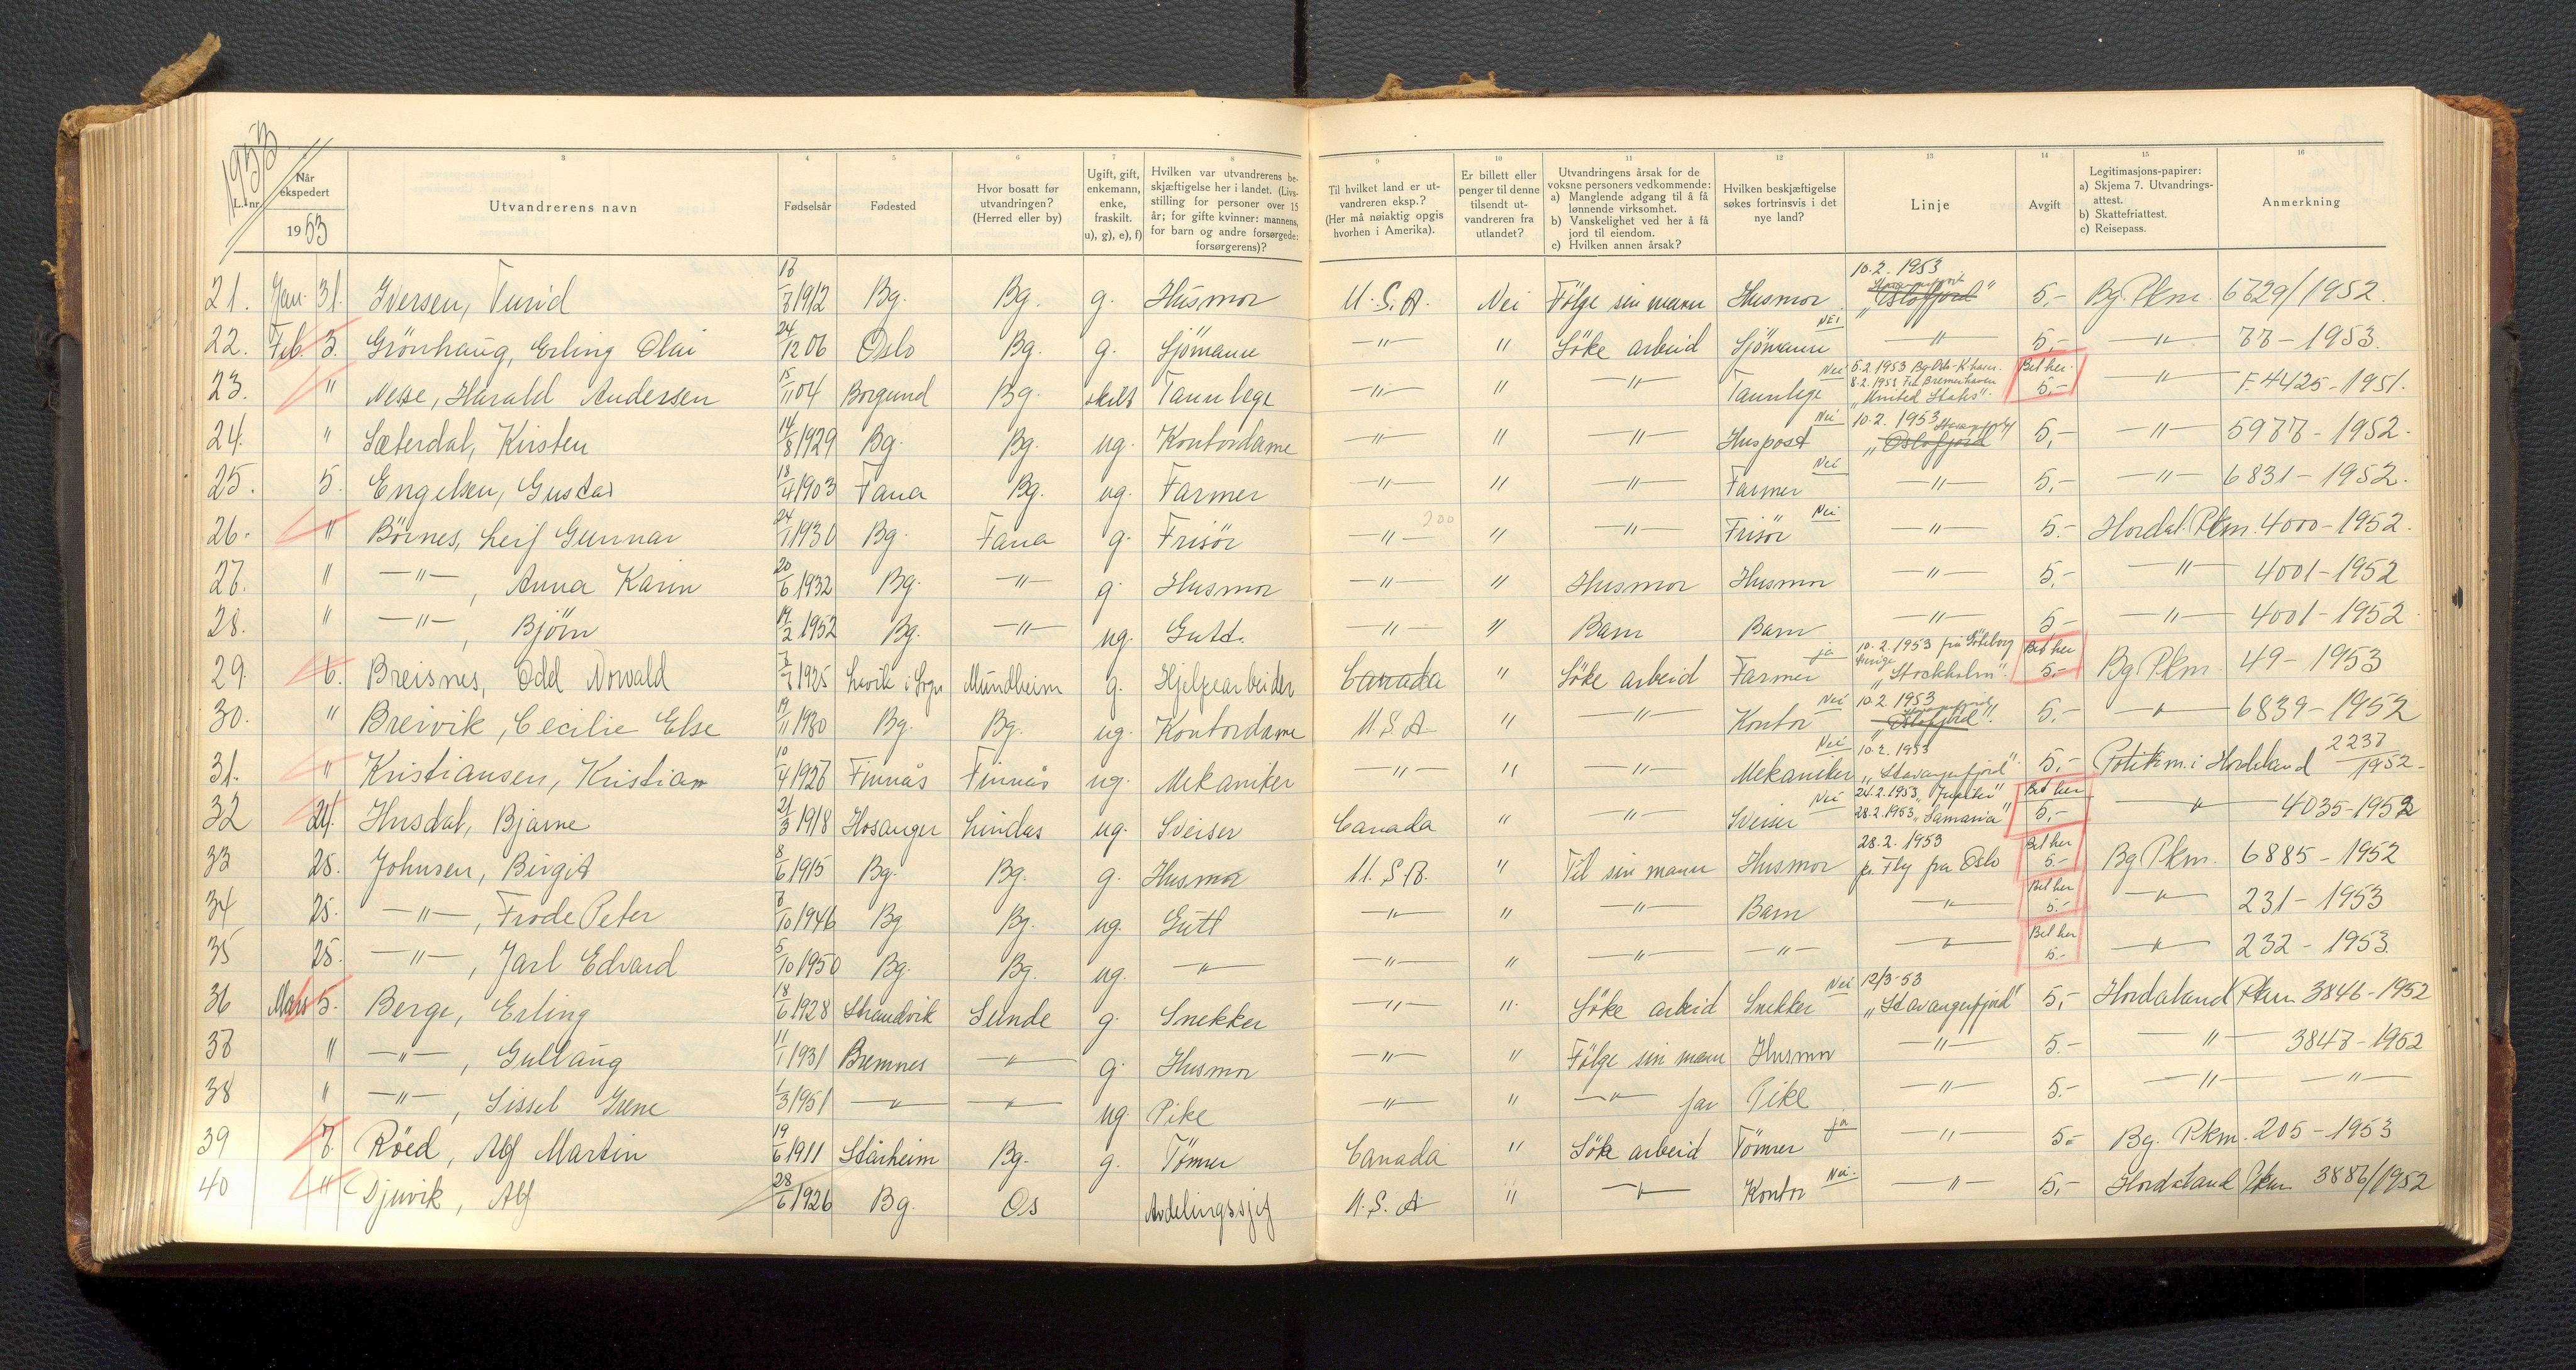 1953
L. nr.
Når ekspedert
1953
3 Utvandrerens navn
4 Fødselsår
5 Fødested
6 Hvor bosatt før utvandringen? (Herred eller by)
7 Ugift, gift, enkemann, enke, fraskilt. u), g), e), f)
8 Hvilken var utvandrerens beskjæftigelse her i landet. (Livsstilling for personer over 15 år; for gifte kvinner: mannens, for barn og andre forsørgede: forsørgerens)?
9 Til hvilket land er utvandreren eksp.? (Her må nøiaktig opgis hvorhen i Amerika).
10 Er billett eller penger til denne tilsendt utvandreren fra utlandet?
11 Utvandringens årsak for de voksne personers vedkommende: a) Manglende adgang til å få lønnende virksomhet. b) Vanskelighet ved her å få jord til eiendom. c) Hvilken annen årsak?
12 Hvilken beskjæftigelse søkes fortrinsvis i det nye land?
13 Linje
14 Avgift
15 Legitimasjons-papirer: a) Skjema 7. Utvandringsattest. b) Skattefriattest. c) Reisepass.
16 Anmerkning
21. Jan. 31. Iversen, Turid 1912 Bg. Bg. g. Husmor U.S.A. Nei Følge sin mann Husmor 10.2.1953 "Oslofjord" 5,- Bg. Pkm. 6729/1952.
22. Feb. 3. Grönhaug, Erling Olai 24/12 06 Oslo Bg. g. Sjömann -"- " Söke arbeid Sjömann NEI -"- 5,- -"- 77-1953.
23. " Nesse, Harald Andersen 15/11 04 Borgund Bg. skilt Tannlege -"- " -"- Tannlege Nei 5.2.1953 Bg-Oslo-K.havn. 8.2.1953 Fra Bremerhaven "United States". Bet her 5,- -"- F. 4425-1951.
24. " Sæterdal, Kirsten 14/8 1929 Bg. Bg. ug. Kontordame -"- " -"- Huspost Nei 10.2.1953 Stavangerfjord "Oslofjord" 5,- -"- 5977-1952.
25. 5. Engelsen, Gustav 18/4 1903 Fana Bg. ug. Farmer -"- " -"- Farmer Nei -"- 5,- -"- 6831-1952.
26. " Börnes, Leif Gunnar 24/1 1930 Bg. Fana g. Frisör -"- 200 " -"- Frisör Nei -"- 5.- Hordal. Pkm. 4000-1952.
27. " -"-, Anna Karin 20/6 1932 Bg. -"- g. Husmor -"- " Husmor Husmor -"- 5,- -"- 4001-1952
28. " -"-, Björn 2 1952 Bg. -"- ug. Gutt. -"- " Barn Barn -"- 5- -"- 4001-1952
29. 6. Breisnes, Odd Norvald 1925 Lavik i Sogn Mundheim g. Hjelpearbeider Canada " Söke arbeid Farmer ja 10.2.1953 fra Göteborg Sverige "Stockholm". Bet her 5,- Bg Pkm. 49-1953
30. " Breivik, Cecilie Else 19/11 1930 Bg. Bg. ug. Kontordame U.S.A " -"- Kontor Nei 10.2.1953 "Oslofjord". 5,- -"- 6839-1952
31. " Kristiansen, Kristian 10/4 1927 Finnås Finnås ug. Mekaniker -"- " -"- Mekaniker Nei 10.2.1953 "Stavangerfjord". 5,- Politim. i Hordaland 2237/1952-
32 24. Husdal, Bjarne 21/3 1918 Hosanger Lindås ug. Sveiser Canada " -"- Sveiser Nei 24.2.1953 "Jupiter" 28.2.1953 "Samaria" Bet her 5,- -"- 4035-1952
33 25. Johnsen, Birgit 8/6 1915 Bg. Bg. g. Husmor U.S.A. " Til sin mann Husmor 28.2.1953 pr. Fly fra Oslo Bet her 5.- Bg Pkm. 6885-1952
34 25. -"-, Frode Peter 10 1946 Bg Bg. ug. Gutt -"- " -"- Barn -"- Bet her 5.- -"- 231-1953
35 25. -"-, Jarl Edvard 5/10 1950 Bg. Bg. ug. -"- -"- " -"- -"- -"- Bet her 5.- -"- 232-1953.
36 Mars 5. Berge, Erling 18/6 1928 Strandvik Sunde g. Snekker -"- " Söke arbeid Snekker Nei 12/3-53 "Stavangerfjord" 5,- Hordaland Pkm 3846-1952
37 " -"-, Gullaug 11/1 1931 Bremnes -"- g. Husmor -"- " Følge sin mann Husmor -"- 5.- -"- 3847-1952
38 " -"-, Sissel Irene 1/3 1951 -"- -"- ug Pike -"- " -"- far Pike -"- 5.- -"- -"-
39 7. Röed, Alf Martin 19/6 1911 Stårheim Bg. g. Tömrer Canada " Söke arbeid Tömrer ja -"- 5.- Bg. Pkm. 205-1953
40 " Djuvik, Alf 28/6 1926 Bg. Os Avdelingssjef U.S.A " -"- Kontor Nei. -"- 5,- Hordaland Pkm 3886/1952